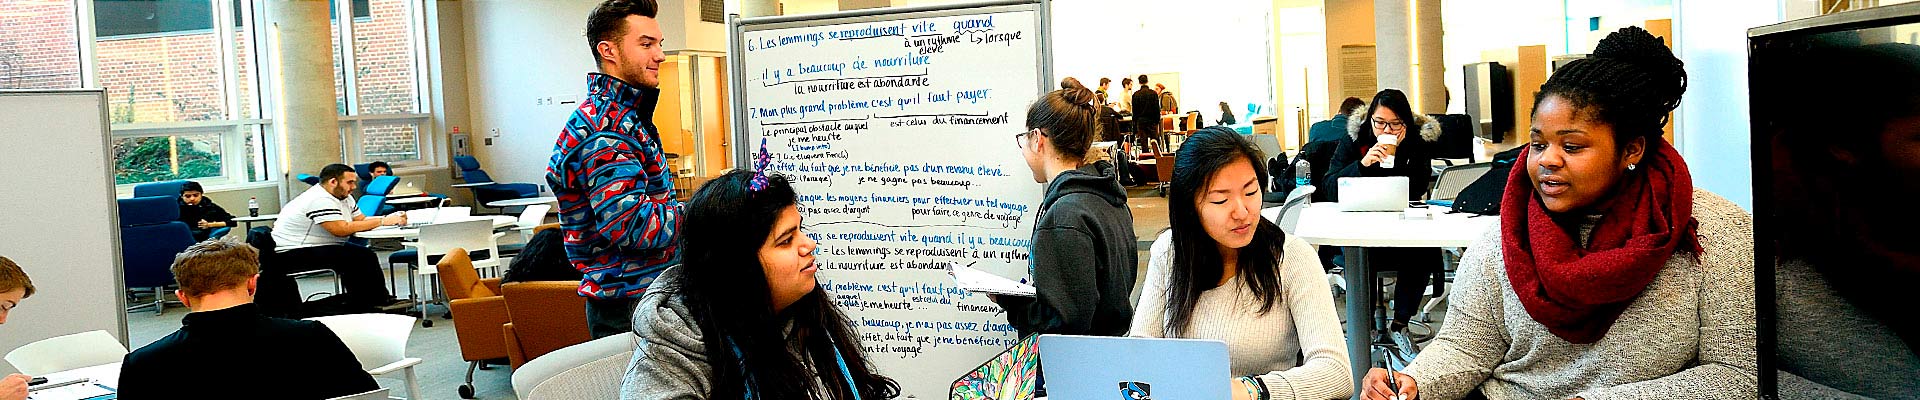 6. Les lemmings se reproduisent vite quand
à un rythme ↳ lorsque
élevé
... il y a beaucoup de nourriture
la nourriture est abondante
7. Mon plus grand problème c'est qu'il faut payer.
Le principal obstacle auquel est celui du financement
je me heurte
En effet, du fait que je ne bénéficie pas d'un revenu élevé...
je ne gagne pas beaucoup...
les moyens financiers pour effectuer un tel voyage
pas assez d'argent pour faire ce genre de voyage
se reproduisent vite quand il y a beaucou
= Les lemmings se reproduisent à un rythm
la nourriture est abondan
problème c'est qu'il faut pay
auquel est celui du
que je me heurte ... financem
beaucoup, je n'ai pas assez d'arg
effet, du fait que je ne bénéficie pa
un tel voyage